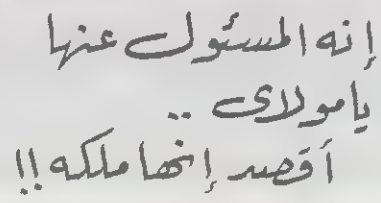 إنه المسئول عنها
يا مولاى ..
أقصد إنها ملكه !!